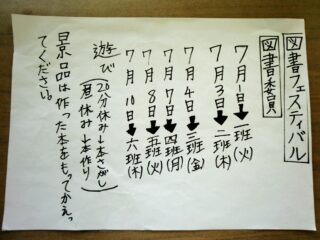 図書フェスティバル
図書委員
7月1日➡一班(火)
7月3日➡二班(木)
7月4日➡三班(金)
7月7日➡四班(月)
7月8日➡五班(火)
7月10日➡六班(木)
遊び(20分休み→本さがし
昼休み→本作り)
景品は作った本をもってかえっ
てください。